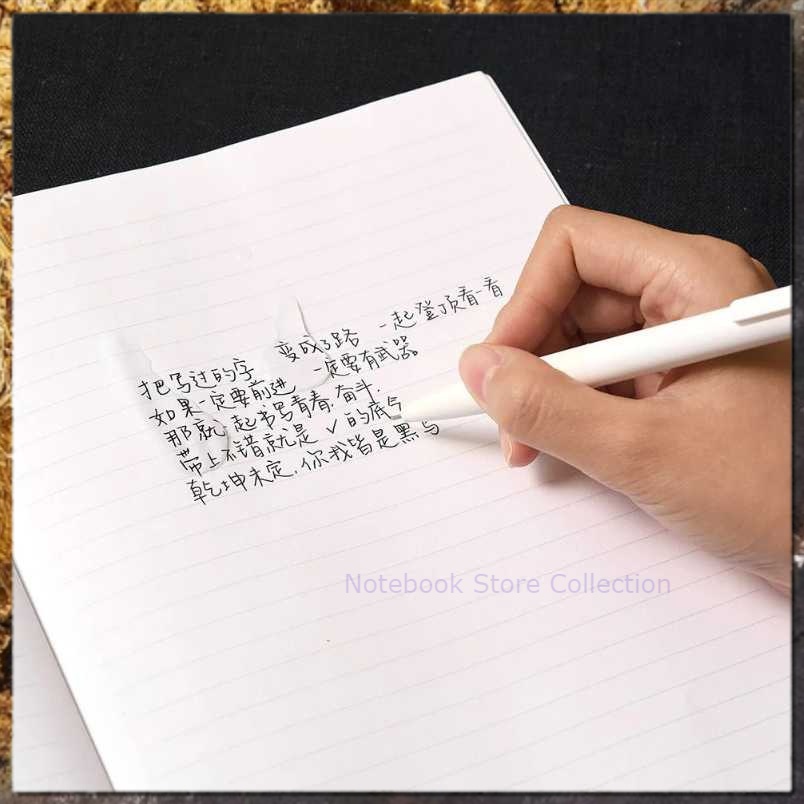 把写过的字 变成了路 一起登顶看一看
如果一定要前进 一定要有武器。
那就一起书写青春.奋斗.
带上不错就是 ✓ 的底今
乾坤未定,你我皆是黑马
Notebook Store Collection